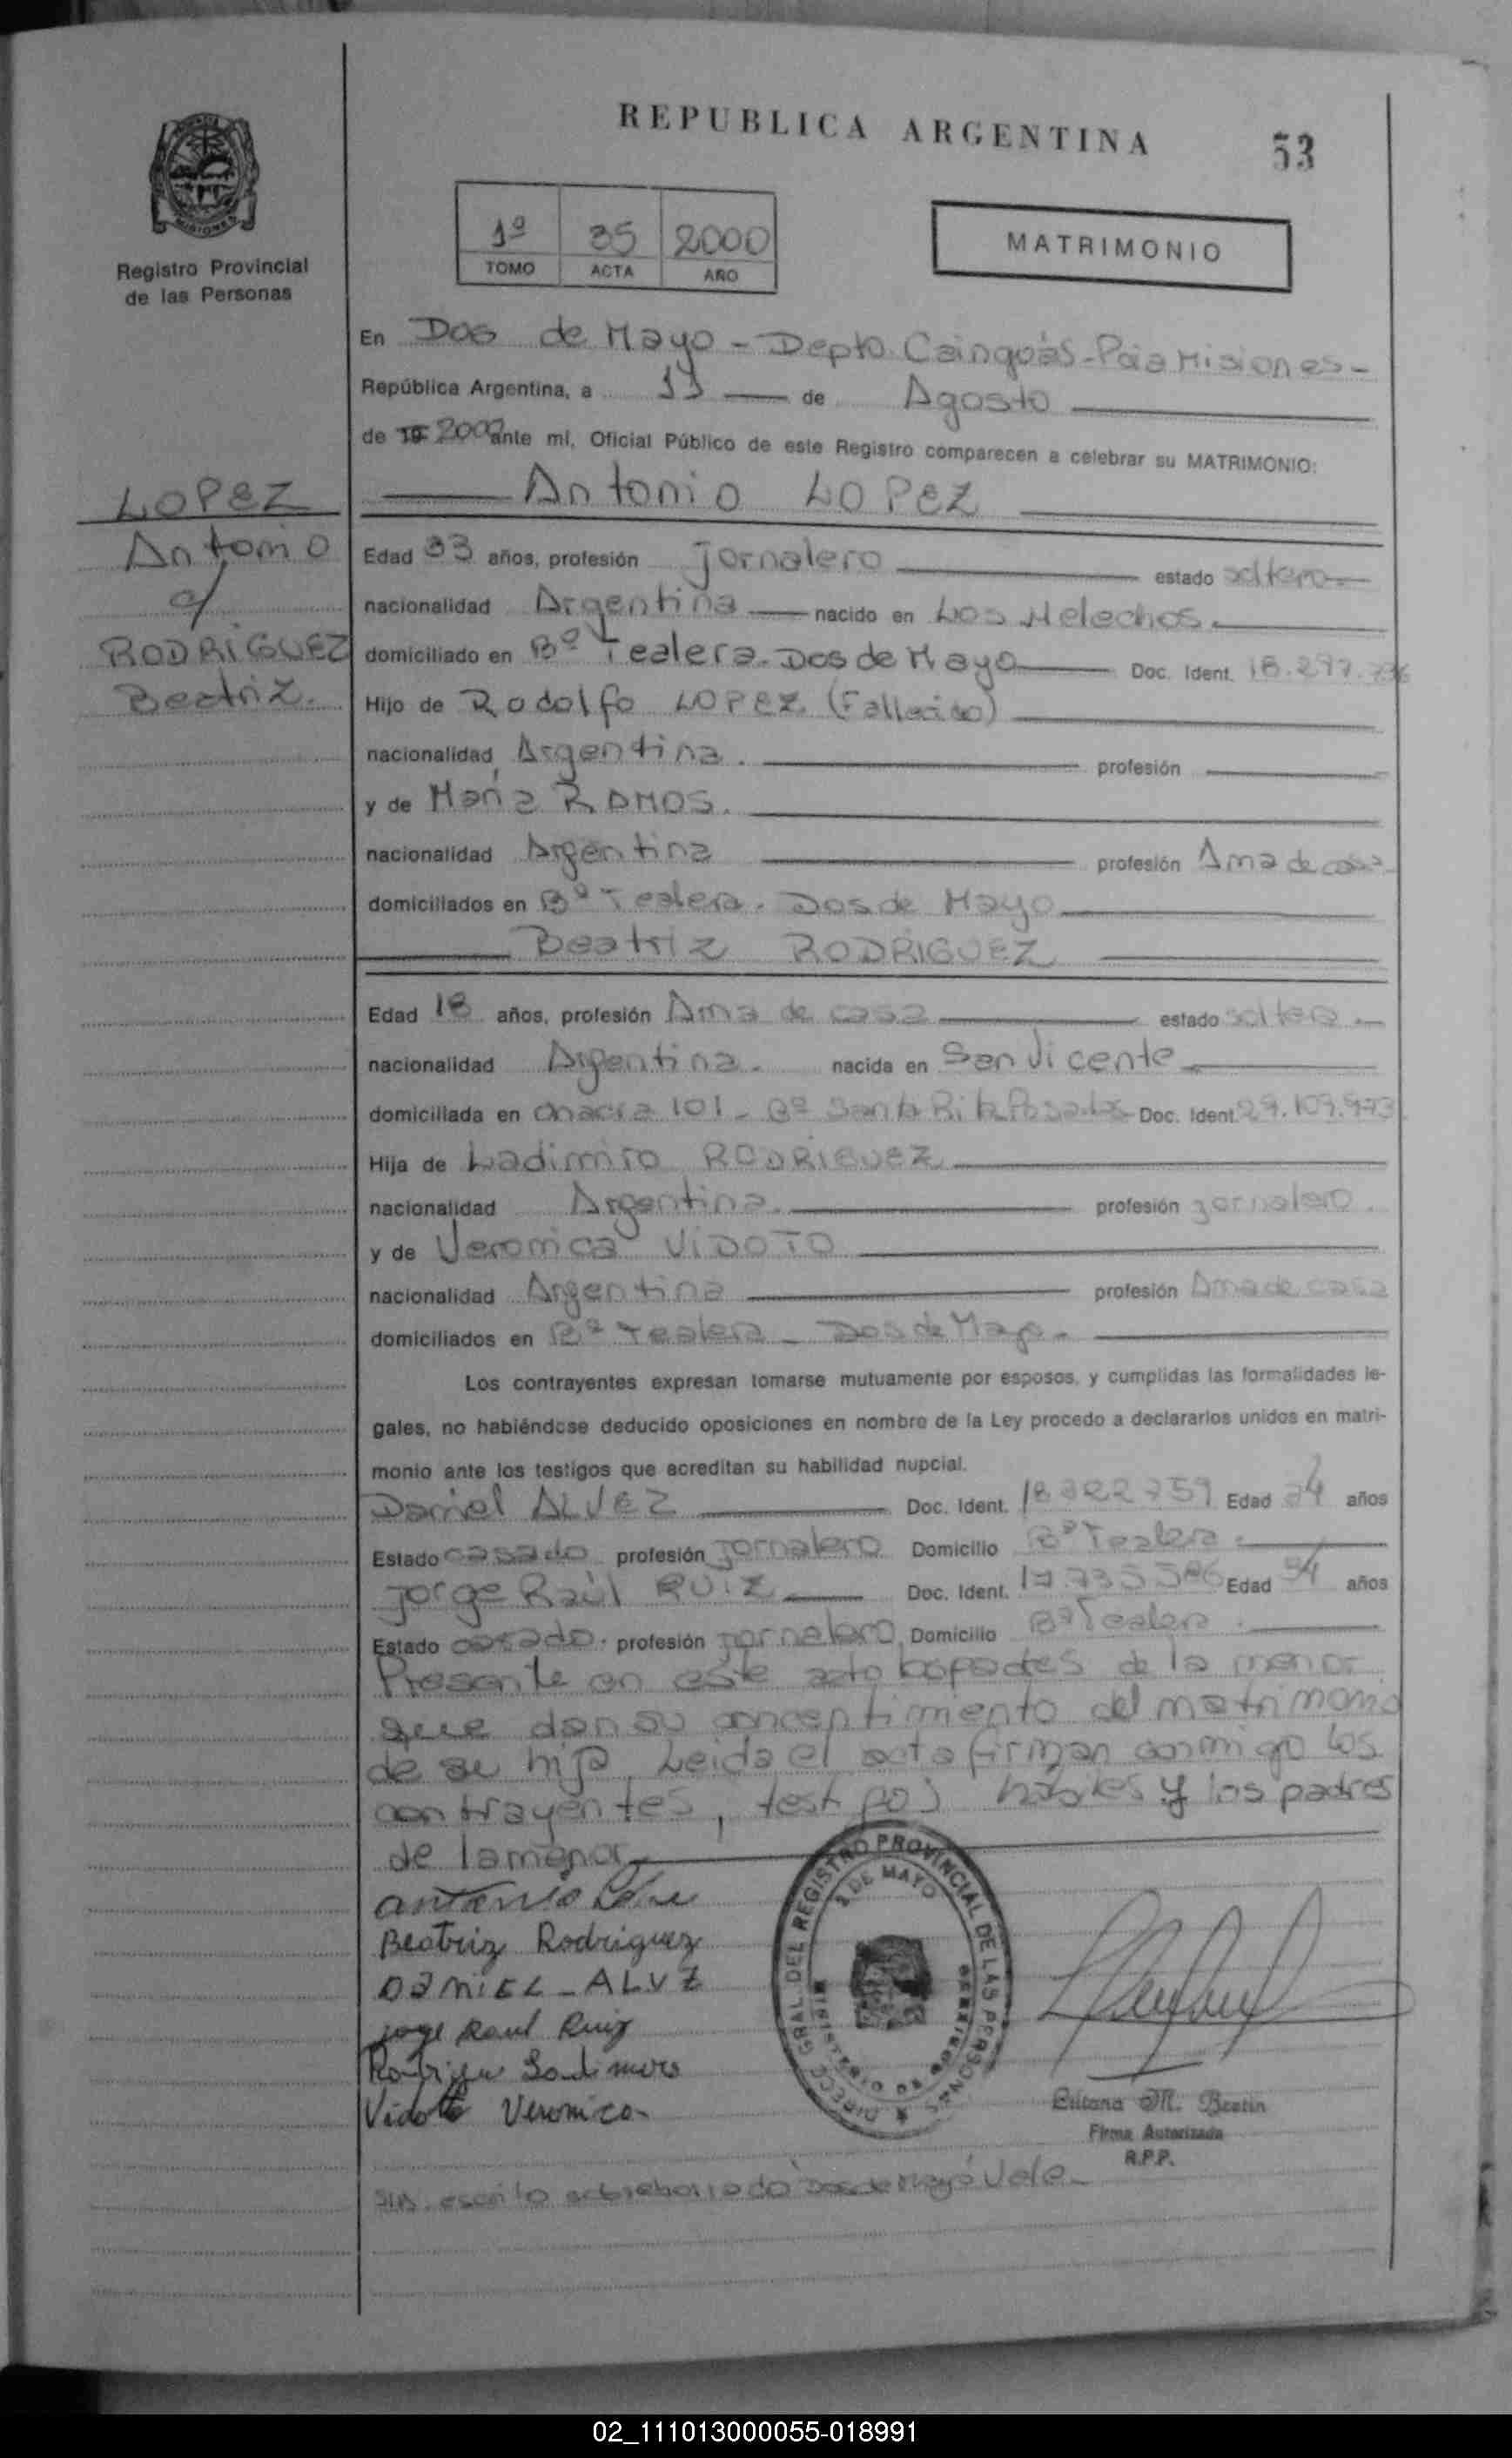 REPUBLICA ARGENTINA
53
1º 35 2000
TOMO ACTA AÑO
MATRIMONIO
MISIONES
Registro Provincial
de las Personas
LOPEZ
Antonio
c/
RODRIGUEZ
Beatriz.
En Dos de Mayo - Depto. Cainguás - Pcia Misiones -
República Argentina, a 11 de Agosto
de 19 2000 ante mí, Oficial Público de este Registro comparecen a celebrar su MATRIMONIO:
Antonio LOPEZ
Edad 33 años, profesión jornalero estado soltero
nacionalidad Argentina nacido en Los Helechos.
domiciliado en Bº Tealera. Dos de Mayo Doc. Ident. 18.297.736
Hijo de Rodolfo LOPEZ (Fallecido)
nacionalidad Argentina. profesión
y de María RAMOS.
nacionalidad Argentina profesión Ama de casa
domiciliados en Bº Tealera. Dos de Mayo
Beatriz RODRIGUEZ
Edad 18 años, profesión Ama de casa estado soltera.
nacionalidad Argentina. nacida en San Vicente
domiciliada en Chacra 101 - Bº Santa Rita Posadas Doc. Ident. 29.109.973
Hija de Ladimiro RODRIGUEZ
nacionalidad Argentina. profesión jornalero.
y de Veronica VIDOTO
nacionalidad Argentina profesión Ama de casa
domiciliados en Bº Tealera - Dos de Mayo.
Los contrayentes expresan tomarse mutuamente por esposos, y cumplidas las formalidades le-
gales, no habiéndose deducido oposiciones en nombre de la Ley procedo a declararlos unidos en matri-
monio ante los testigos que acreditan su habilidad nupcial.
Daniel ALVEZ Doc. Ident. 18 322 759 Edad 34 años
Estado casado profesión jornalero Domicilio Bº Tealera.
Jorge Raúl RUIZ Doc. Ident. 17.735.586 Edad 34 años
Estado casado. profesión jornalero Domicilio Bº Tealera.
Presente en este acto los padres de la menor
que dan su conceptimiento del matrimonio
de su hija. Leida el acta firman conmigo los
contrayentes, testigos habiles y los padres
de la menor
antonio
Beatriz Rodriguez
DaMiEL - ALVZ
jorge Raul Ruiz
Ladimiro
Vidoto Veronica
DIRECC. GRAL. DEL REGISTRO PROVINCIAL DE LAS PERSONAS
2 DE MAYO
MINISTERIO DE GOBIERNO
MISIONES
M.
Firma Autorizada
R.P.P.
escrito sobreborrado Dos de Mayo Vale.
02_111013000055-018991